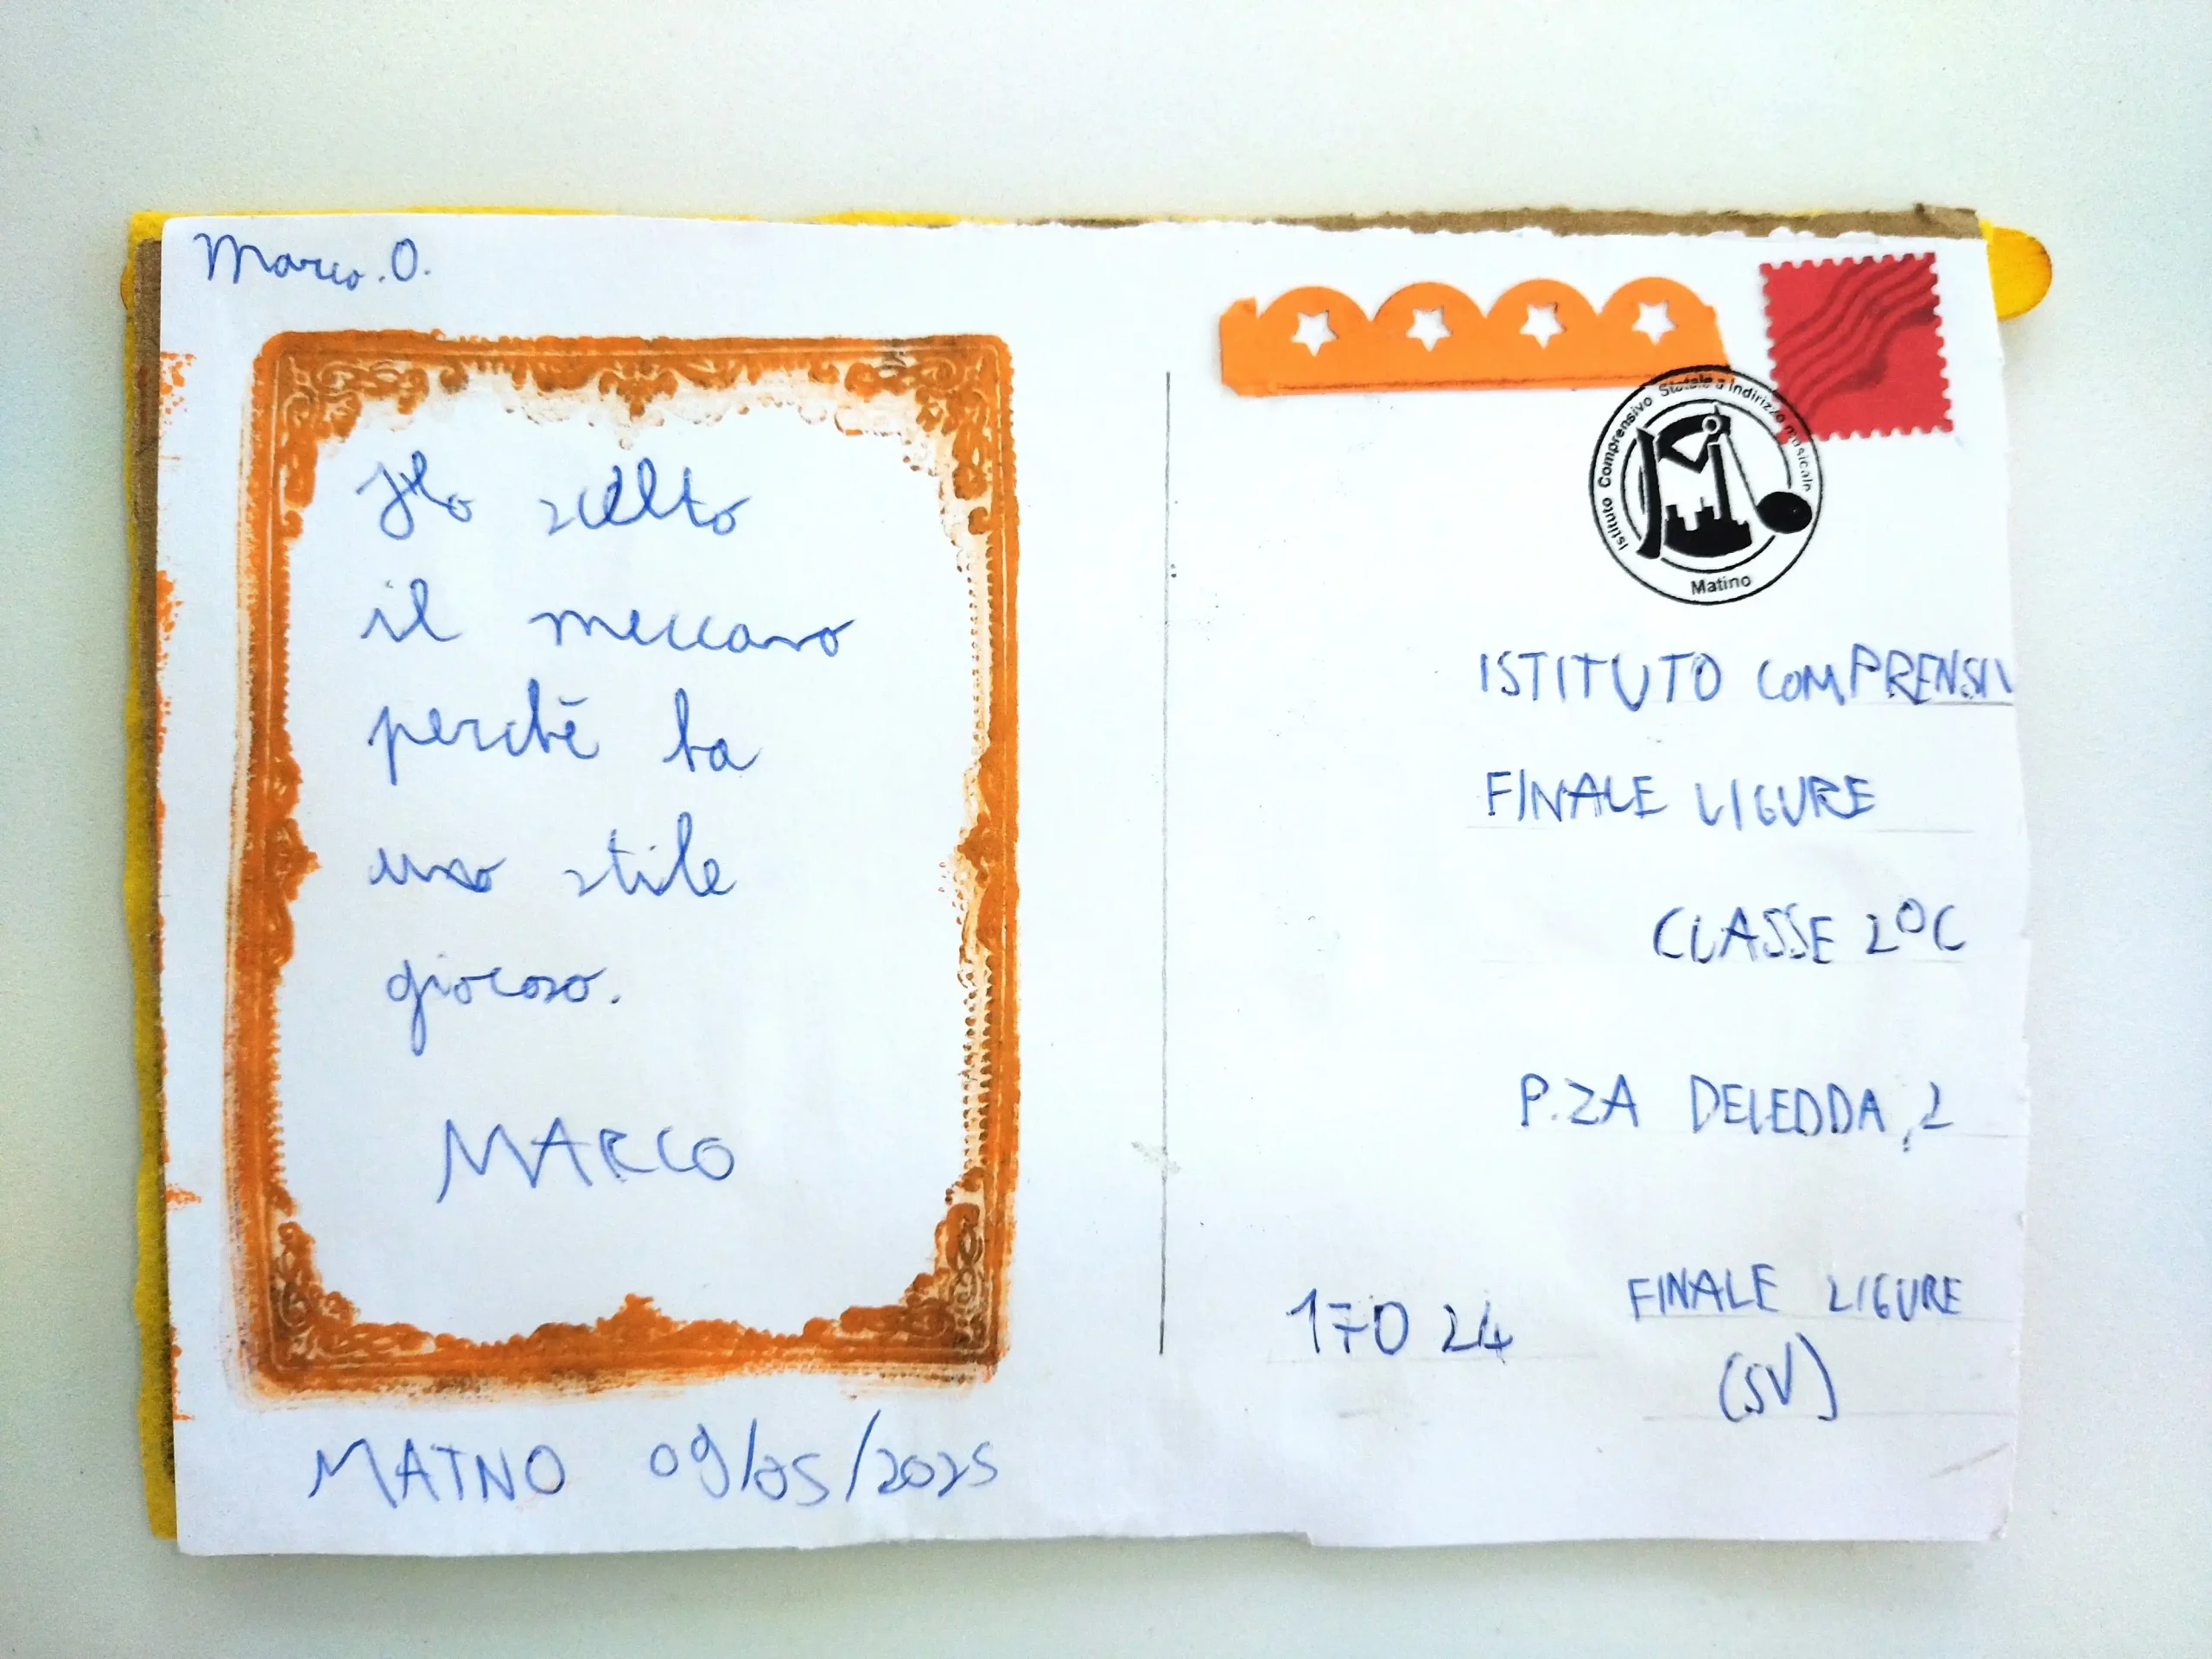 Marco.O.
Ho scelto
il meccano
perchè ha
uno stile
giocoso.
MARCO
MATNO 09/05/2025
Istituto Comprensivo Statale a Indirizzo musicale
Matino
ISTITUTO COMPRENSIV
FINALE LIGURE
CLASSE 2°C
P.ZA DELEDDA, 2
17024 FINALE LIGURE
(SV)